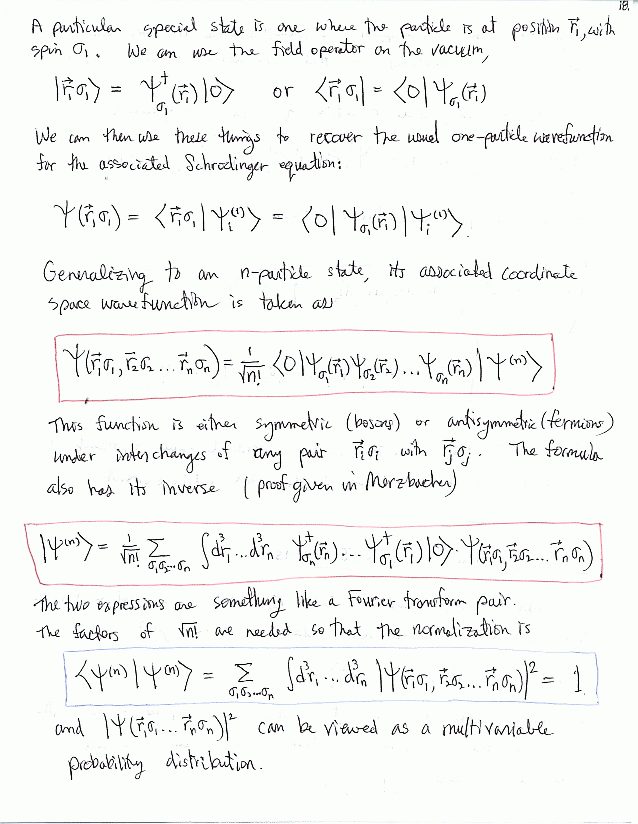 A particular special state is one where the particle is at position r⃗₁, with
spin σ₁. We can use the field operator on the vacuum,
|r⃗₁σ₁⟩ = Ψ†_σ₁(r⃗₁)|0⟩ or ⟨r⃗₁σ₁| = ⟨0|Ψ_σ₁(r⃗₁)
We can then use these things to recover the usual one-particle wavefunction
for the associated Schrodinger equation:
Ψ(r⃗₁σ₁) = ⟨r⃗₁σ₁|Ψᵢ⁽¹⁾⟩ = ⟨0|Ψ_σ₁(r⃗₁)|Ψᵢ⁽¹⁾⟩.
Generalizing to an n-particle state, its associated coordinate
space wavefunction is taken as
Ψ(r⃗₁σ₁, r⃗₂σ₂ ... r⃗ₙσₙ) = 1/√n! ⟨0|Ψ_σ₁(r⃗₁)Ψ_σ₂(r⃗₂)...Ψ_σₙ(r⃗ₙ)|Ψ⁽ⁿ⁾⟩
This function is either symmetric (bosons) or antisymmetric (fermions)
under interchanges of any pair r⃗ᵢσᵢ with r⃗ⱼσⱼ. The formula
also has its inverse (proof given in Merzbacher)
|Ψ⁽ⁿ⁾⟩ = 1/√n! Σ_σ₁σ₂...σₙ ∫d³r₁...d³rₙ Ψ†_σₙ(r⃗ₙ)...Ψ†_σ₁(r⃗₁)|0⟩·Ψ(r⃗₁σ₁, r⃗₂σ₂... r⃗ₙσₙ)
The two expressions are something like a Fourier transform pair.
The factors of √n! are needed so that the normalization is
⟨Ψ⁽ⁿ⁾|Ψ⁽ⁿ⁾⟩ = Σ_σ₁σ₂...σₙ ∫d³r₁...d³rₙ |Ψ(r⃗₁σ₁, r⃗₂σ₂...r⃗ₙσₙ)|² = 1
and |Ψ(r⃗₁σ₁...r⃗ₙσₙ)|² can be viewed as a multivariable
probability distribution.